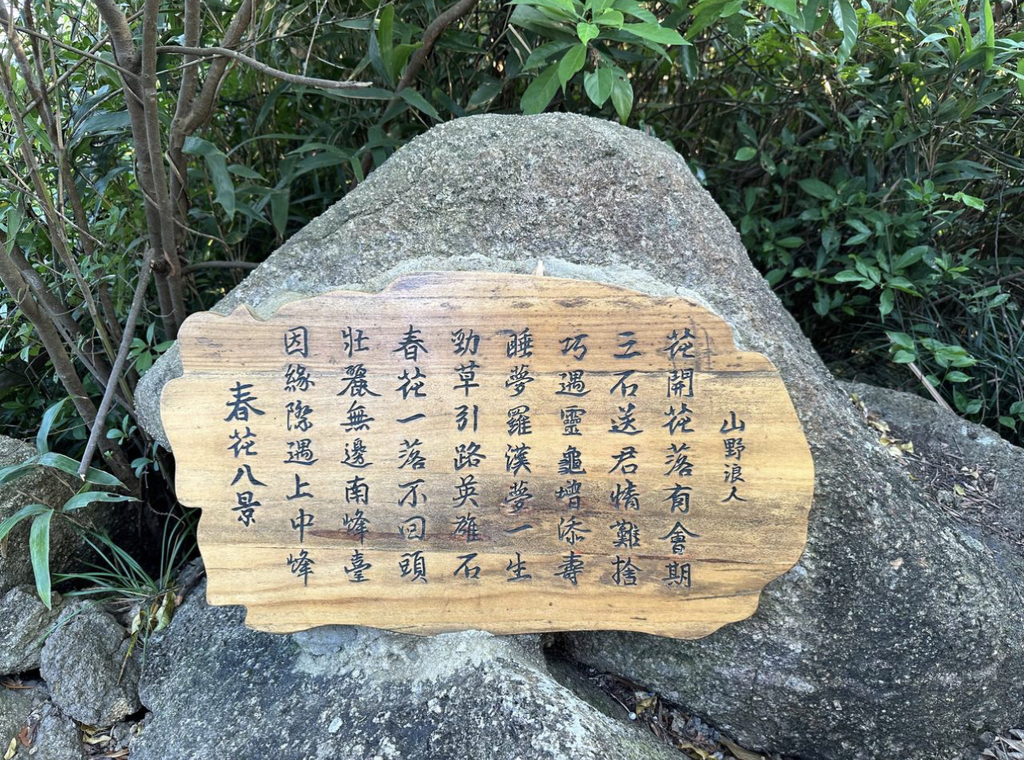 春花八景
因緣際遇上中峰
壯麗無邊南峰臺
春花一落不回頭
勁草引路英雄石
睡夢羅漢夢一生
巧遇靈龜增添壽
三石送君情難捨
花開花落有會期
山野浪人